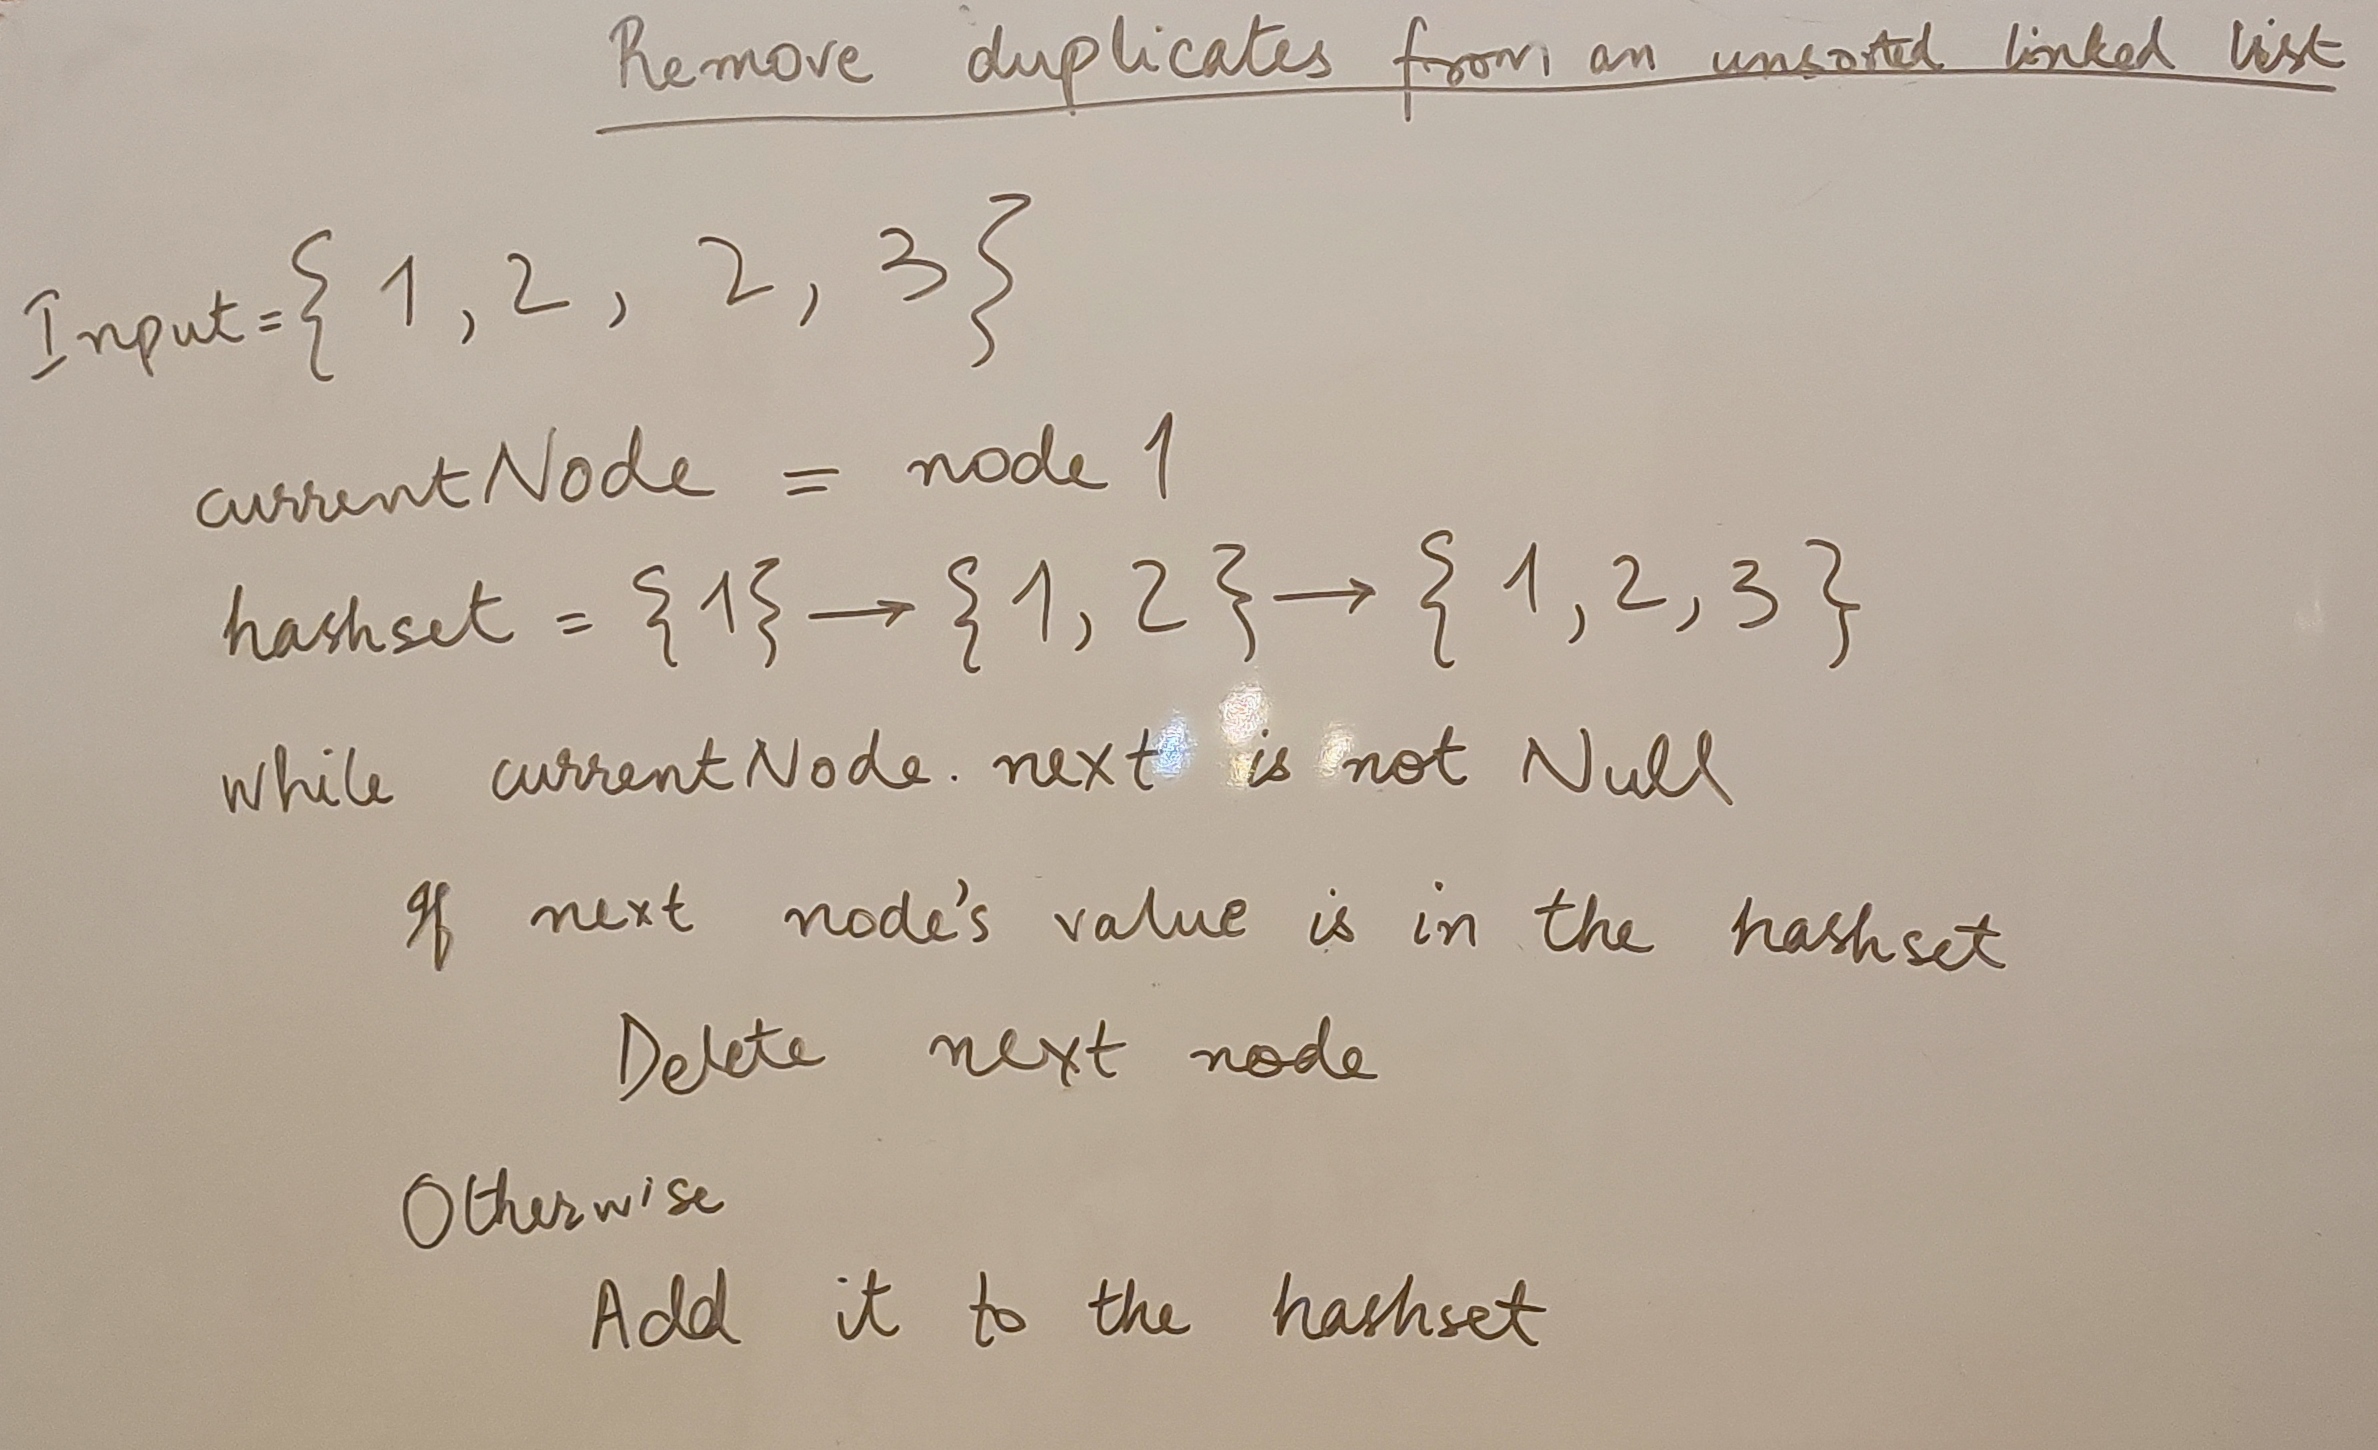 Remove duplicates from an unsorted linked list
Input={1,2, 2, 3}
currentNode = node 1
hashset = {1}→{1,2}→{1,2,3}
while currentNode.next is not Null
If next node's value is in the hashset
Delete next node
Otherwise
Add it to the hashset